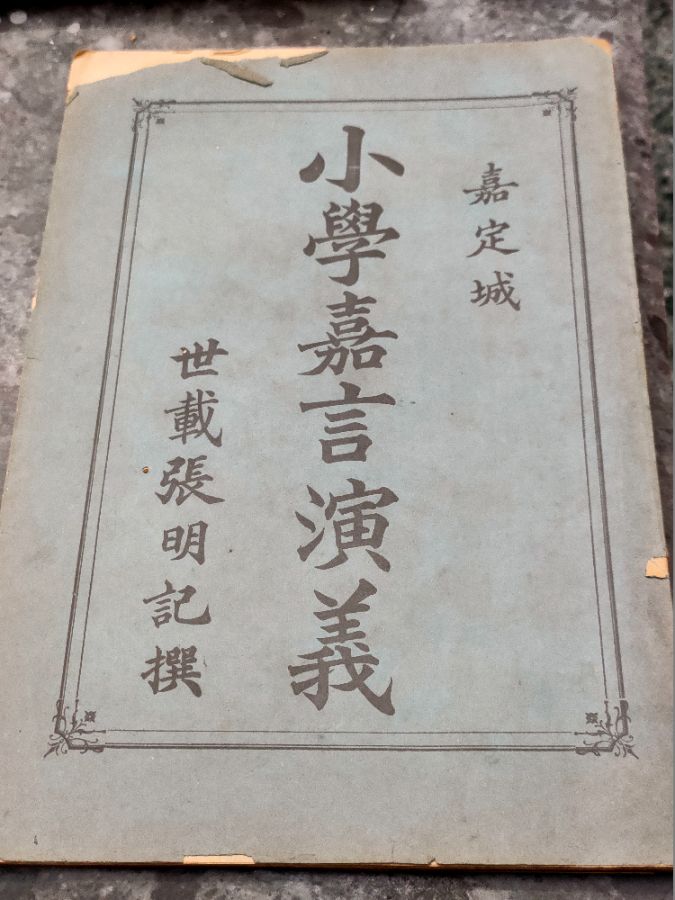 嘉定城
小學嘉言演義
世載張明記撰